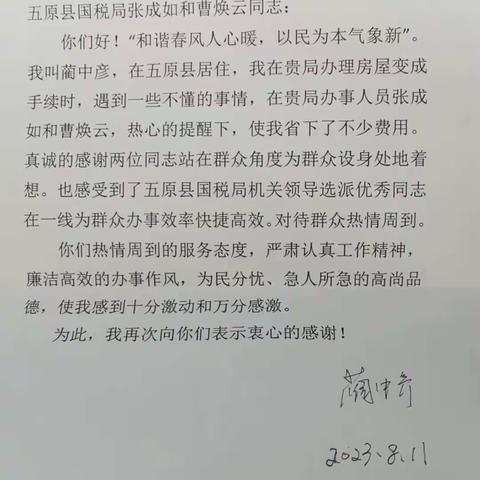 五原县国税局张成如和曹焕云同志：
你们好！“和谐春风人心暖，以民为本气象新”。
我叫蔺中彦，在五原县居住，我在贵局办理房屋变成
手续时，遇到一些不懂的事情，在贵局办事人员张成
如和曹焕云，热心的提醒下，使我省下了不少费用。
真诚的感谢两位同志站在群众角度为群众设身处地着
想。也感受到了五原县国税局机关领导选派优秀同志
在一线为群众办事效率快捷高效。对待群众热情周到。
你们热情周到的服务态度，严肃认真工作精神，
廉洁高效的办事作风，为民分忧、急人所急的高尚品
德，使我感到十分激动和万分感激。
为此，我再次向你们表示衷心的感谢！
蔺中彦
2023.8.11